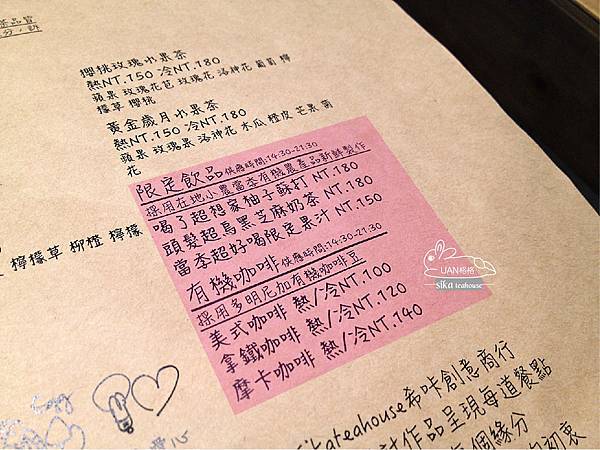 茶品皆
櫻桃玫瑰水果茶
熱NT.150 冷NT.180
蘋果 玫瑰花苞 玫瑰花 洛神花 葡萄 檸
檬草 櫻桃
黃金歲月水果茶
熱NT.150 冷NT.180
蘋果 玫瑰果 洛神花 木瓜 橙皮 芒果 菊
花
檸檬草 柳橙 檸檬
限定飲品供應時間:14:30-21:30
採用在地小農當季有機農產品新鮮製作
喝了超想家柚子蘇打 NT.180
頭髮超烏黑芝麻奶茶 NT.180
當季超好喝限定果汁 NT.150
有機咖啡供應時間:14:30-21:30
採用多明尼加有機咖啡豆
美式咖啡 熱/冷NT.100
拿鐵咖啡 熱/冷NT.120
摩卡咖啡 熱/冷NT.140
UAN格格
sika teahouse
sikateahouse希咔創意商行
計作品呈現每道餐點
個緣分
初衷